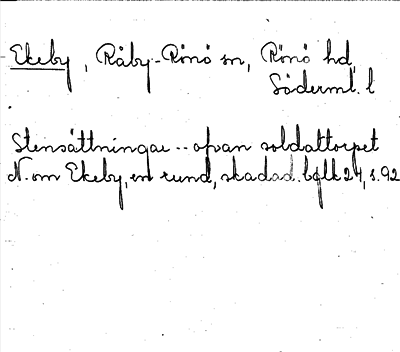 Ekeby, Råby-Rönö sn, Rönö hd,
Söderml. l
Stensättningar -- ofvan soldattorpet
N. om Ekeby, en rund, skadad. bglk 24, s. 92